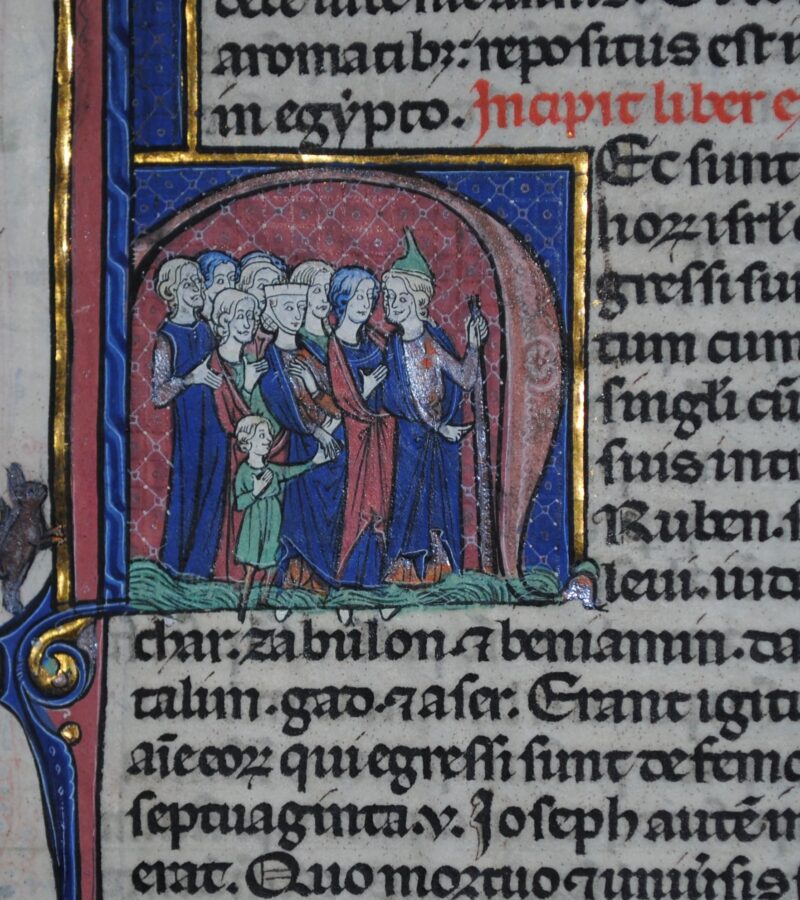 aromatibꝫ: repositus est
in egẏpto. Incipit liber e
Ec sunt
isrł
gressi sun
tum cum
singłi cū
suis intr
Ruben. s
leui. iud
char. zabulon. ⁊ beniamin. da
talim. gad. ⁊ aser. Erant igitu
aīe eoꝝ qui egressi sunt de femo
septuaginta. v. Joseph autē in
erat. Quo mortuo ⁊ uniu̾sis